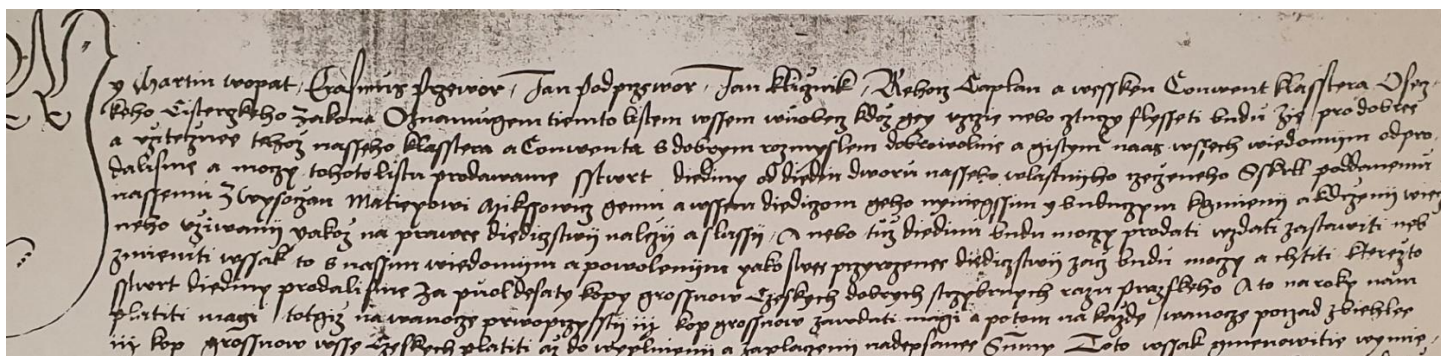 My Martin wopat, Erasmus przewor, Jan Podprzewor, Jan klignik, Rehorz Caplan a wessken Conwent klasstera Osez-
keho Cisterskeho Zakona Oznamugem tiemto listem wssem wuobecz kdoz gey vzrzie nebo cztucz slysseti budu Zie pro dobree
a vziteznee tehoz nasseho klasstera a Conwentu s dobrym rozmyslem dobrowolnie a gistym naas wssech wiedomim odpro-
dalisme a moczy tohoto listu prodawame sstwrt diediny od diedin dworu nasseho wlastnijho rzeczeneho Skrll poddanemu
nassemu z Wysoczan Matiegowi Mikssowicz gemu a wssem diediczom geho nyniegssim y buduczym kgmienij a kdrzenij wiecz-
neho vziwanij yakoz na prawee diediczstwij nalezij a slussij, A nebo tuz diedinu budu moczy prodati wzdati zastawiti neb
zmieniti wssak to s nassim wiedomim a powolenijm yako swee przyrozenee diediczstwij zaiz budu moczy a chtiti kterezto
sstwrt diediny prodalisme Za puol desaty kopy grossuow Czeskych dobrych strzybrnych razu Prazskeho A to na roky nam
platiti magi totgiz na wanocze prwoprzysstij iij kop grossuow zawdati magi a potom na kazde wanocze porzad zbiehlee
iij kop grossuow wsse Czeskych platiti az do wyplnienij a zaplacenij nadepsanee Summy Toto wssak gmenowitie wymie-